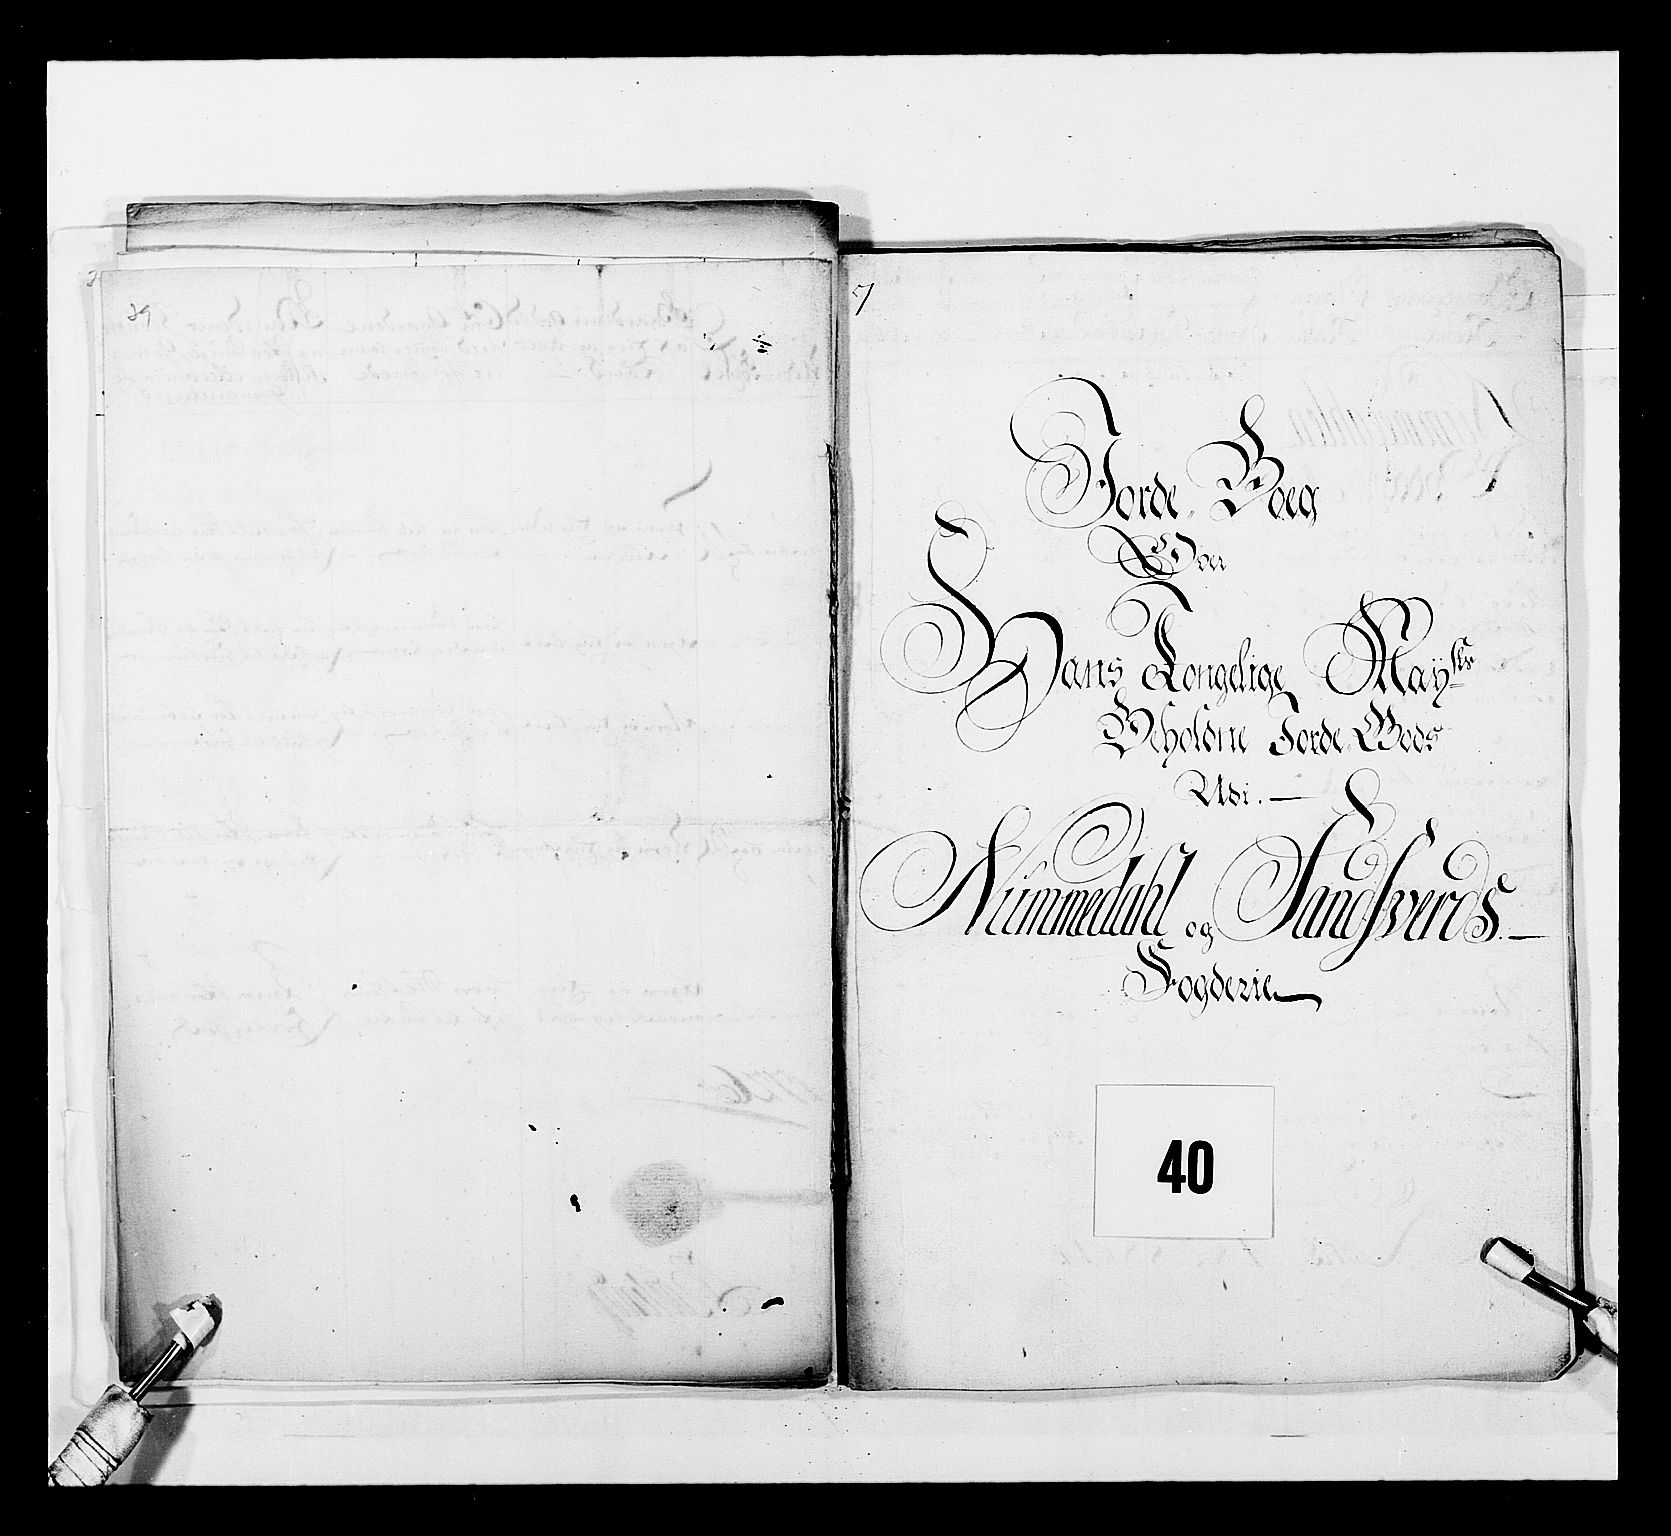 89
7
Jorde-Boeg
Over
Hans Kongelige Mayts
Beholdne Jorde-Gods
Udi. —
Nummedahl og Sandsverds. —
Fogderie
40